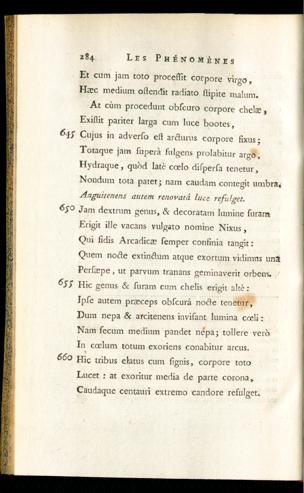 284 LES PHÉNOMÈNES
Et cum jam toto processit corpore virgo,
Hæc medium ostendit radiato stipite malum.
At cùm procedunt obscuro corpore chelæ,
Existit pariter larga cum luce bootes,
645 Cujus in adverso est arcturus corpore fixus;
Totaque jam superà fulgens prolabitur argo,
Hydraque, quòd latè cœlo dispersa tenetur,
Nondum tota patet; nam caudam contegit umbra.
Anguitenens autem renovatâ luce refulget.
650 Jam dextrum genus, & decoratam lumine suram
Erigit ille vacans vulgato nomine Nixus,
Qui fidis Arcadicæ semper confinia tangit:
Quem nocte extinctum atque exortum vidimus unâ
Persæpe, ut parvum tranans geminaverit orbem.
655 Hic genus & suram cum chelis erigit altè:
Ipse autem præceps obscurâ nocte tenetur,
Dum nepa & arcitenens invisant lumina cœli:
Nam secum medium pandet nepa; tollere verò
In cœlum totum exoriens conabitur arcus.
660 Hic tribus elatus cum signis, corpore toto
Lucet: at exoritur media de parte corona,
Caudaque centauri extremo candore refulget.